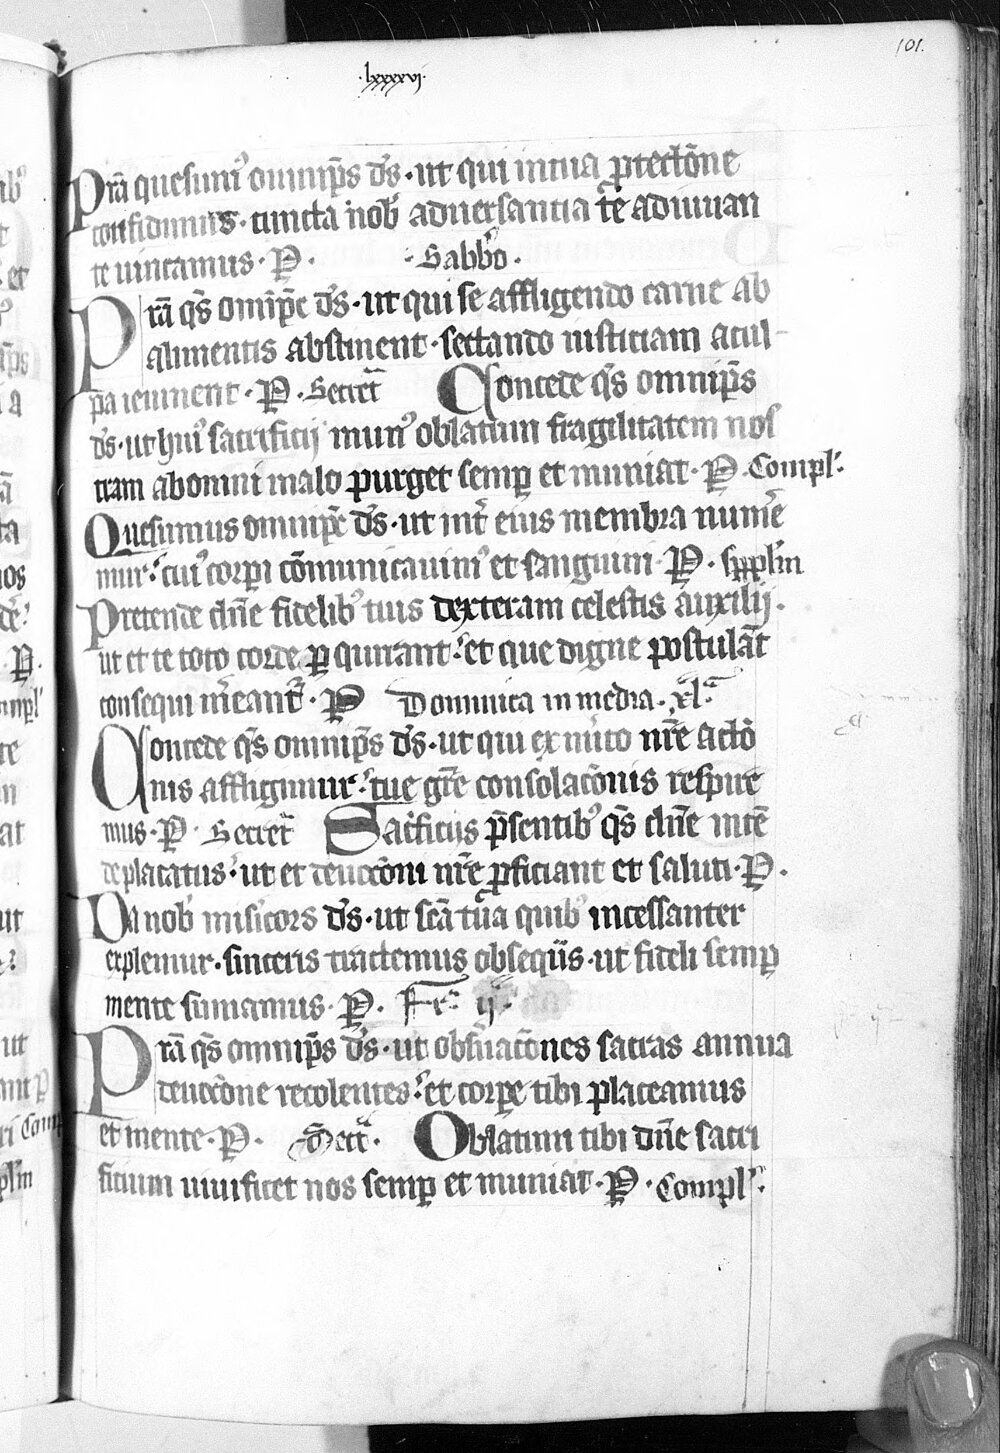 101.
·lxxxxvj·
Pr̄a quesumꝰ omnip̄s d̄s · ut qui in tua ꝓtectōne
confidimus · cuncta nob̄ aduersantia te adiuuan
te uincamus · P · · Sabb̄o ·
Pr̄a q̄s omīpc̄ d̄s · ut qui se affligendo carne ab
alimentis abstinent · sectando iusticiam a cul-
pa ieiunent · P · Secret̄ Concede q̄s omnip̄s
d̄s · ut huiꝰ sacrificij munꝰ oblatum fragilitatem nos
tram ab omni malo purget semꝑ et muniat · P · Compl̄·
Quesumus omnipc̄ d̄s · ut int̄ eius membra nume
mur · cuiꝰ corꝑi cōmunicauimꝰ et sanguini · P · sppl̄m
Pretende dn̄e fidelibꝰ tuis dexteram celestis auxilij ·
ut et te toto corde ꝑquirant · et que digne postulāt
consequi m̄eant̄ · P Dominica in media · xl̄ᵃ
Concede q̄s omnip̄s d̄s · ut qui ex m̄ito nr̄e actō
nis affligimur · tue gr̄e consolac̄onis respire
mus · P · Secret̄ Sac̄ficiis p̄sentibꝰ q̄s dn̄e intē
de placatus · ut et deuoc̄oni nr̄e ꝓficiant et saluti · P ·
Da nob̄ mis̄icors d̄s · ut sc̄a tua quibꝰ incessanter
explemur · sinceris tractemus obsequiis · ut fideli semꝑ
mente sumamus · P · Fe· ij·
Pr̄a q̄s omnip̄s d̄s · ut obs̄uac̄ones sacras annua
deuoc̄one recolentes · et corꝑe tibi placeamus
et mente · P · Secr̄ · Oblatum tibi dn̄e sacri
ficium uiuificet nos semꝑ et muniat · P · Compl̄·